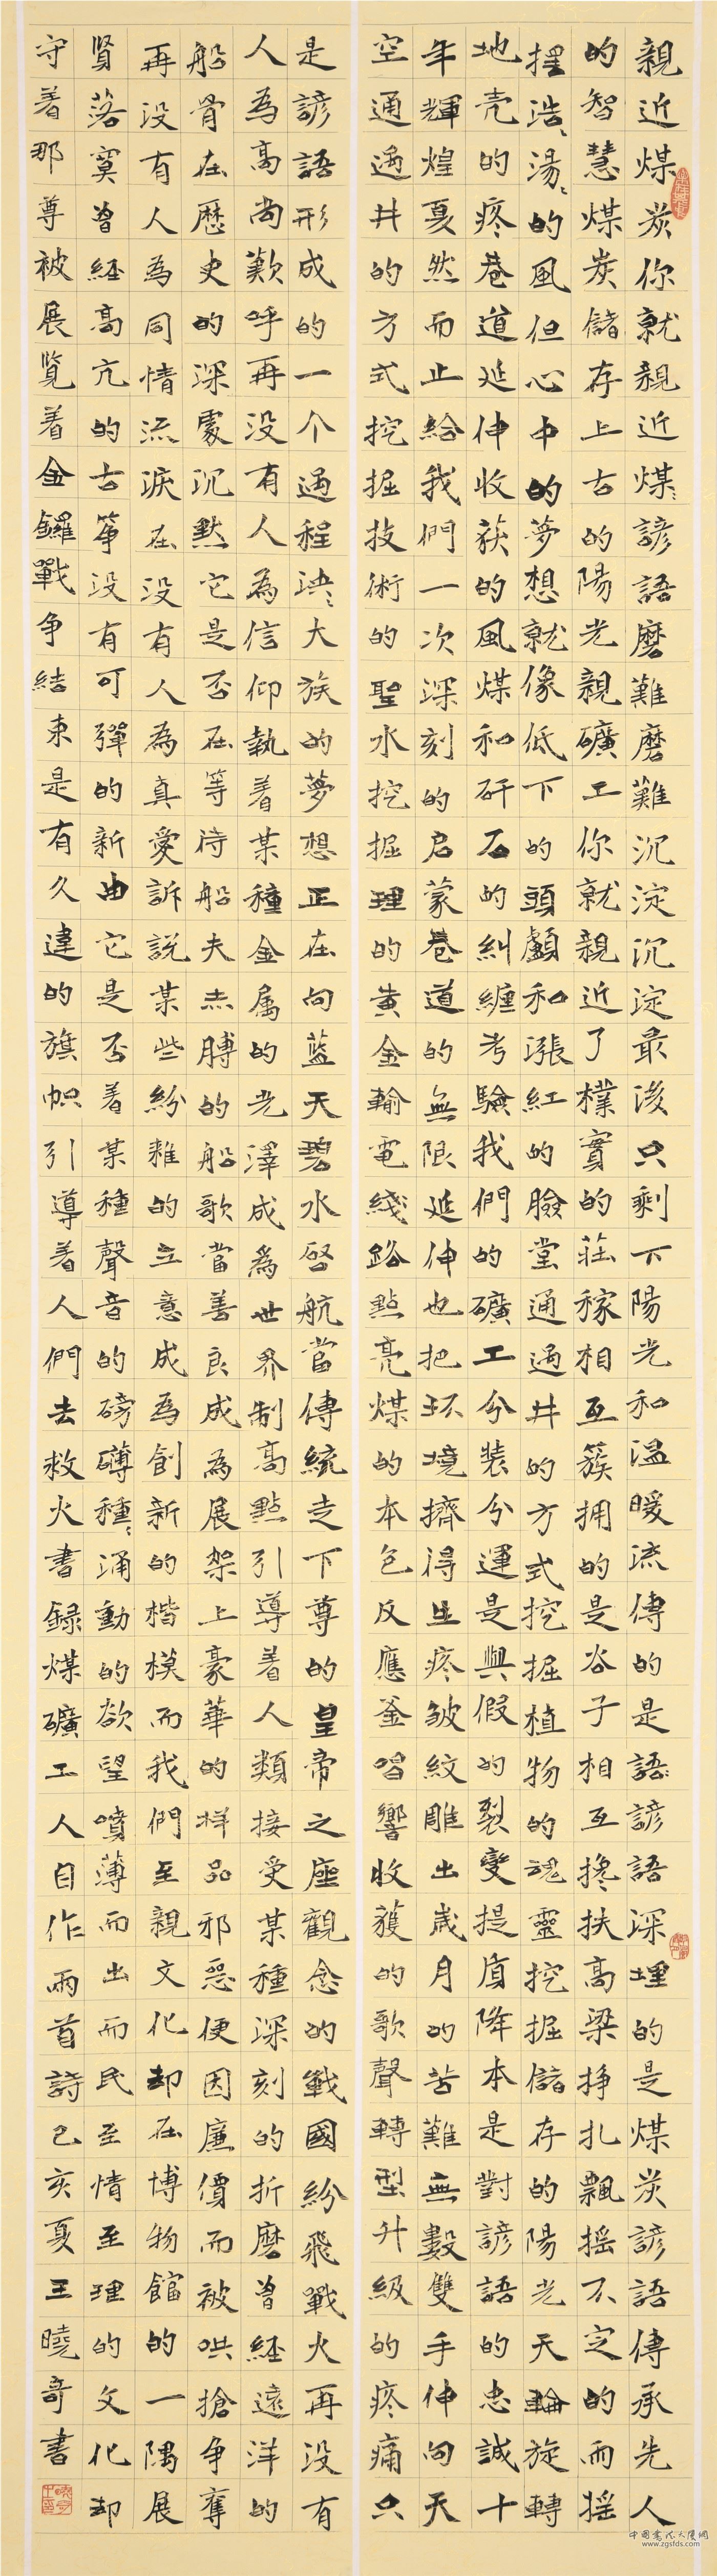 親近煤炭你就親近煤〻諺語磨難磨難沉淀沉淀最後只剩下陽光和温暖流傳的是語〻諺語深埋的是煤炭諺語傳承先人
的智慧煤炭儲存上古的陽光親礦工你就親近了樸實的莊稼相互簇拥的是谷子相互搀扶高梁掙扎飄摇不定的而摇
摆浩〻湯〻的風但心中的夢想就像低下的頭顱和漲紅的臉堂通過井的方式挖掘植物的魂靈挖掘儲存的陽光天輪旋轉
地壳的疼巷道延伸收获的風煤和矸石的糾纏考驗我們的礦工分裝分運是與假的裂變提質降本是對諺語的忠誠十
年輝煌戛然而止給我們一次深刻的启蒙巷道的無限延伸也把环境擠得生疼皴紋雕出歲月的苦難無數雙手伸向天
空通過井的方式挖掘技術的聖水挖掘理的黄金輸電綫路點亮煤的本色反應釜唱響收獲的歌聲轉型升級的疼痛只
是諺語形成的一个過程泱〻大族的夢想正在向蓝天碧水啓航當傳統走下尊的皇帝之座觀念的戰國紛飛戰火再没有
人為高尚歎呼再没有人為信仰執着某種金属的光澤成為世界制高點引導着人類接受某種深刻的折磨曾經遠洋的
船骨在歷史的深處沉默它是否在等待船夫赤膊的船歌當善良成為展架上豪華的样品邪惡便因廉價而被哄搶争奪
再没有人為同情流淚在没有人為真愛訴説某些紛雜的立意成為創新的楷模而我們至親文化却在博物館的一隅展
賢落寞曾經高亢的古筝没有可彈的新曲它是否着某種聲音的磅礴種〻涌動的欲望噴薄而出而民至情至理的文化却
守着那尊被展覽着金鑼戰争結束是有久違的旗帜引導着人們去救火書録煤礦工人自作兩首詩己亥夏王曉奇書
中國書法大厦網
www.zgsfds.com